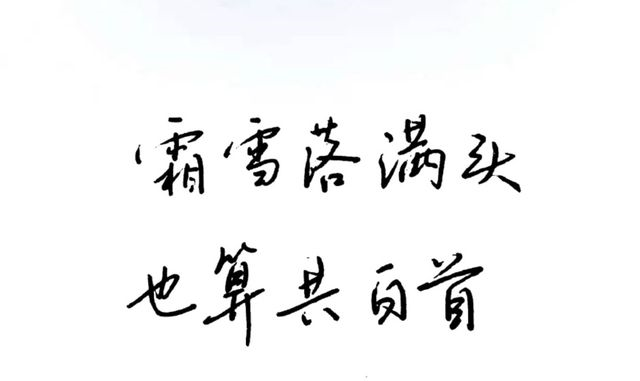 霜雪落满头
也算共白首